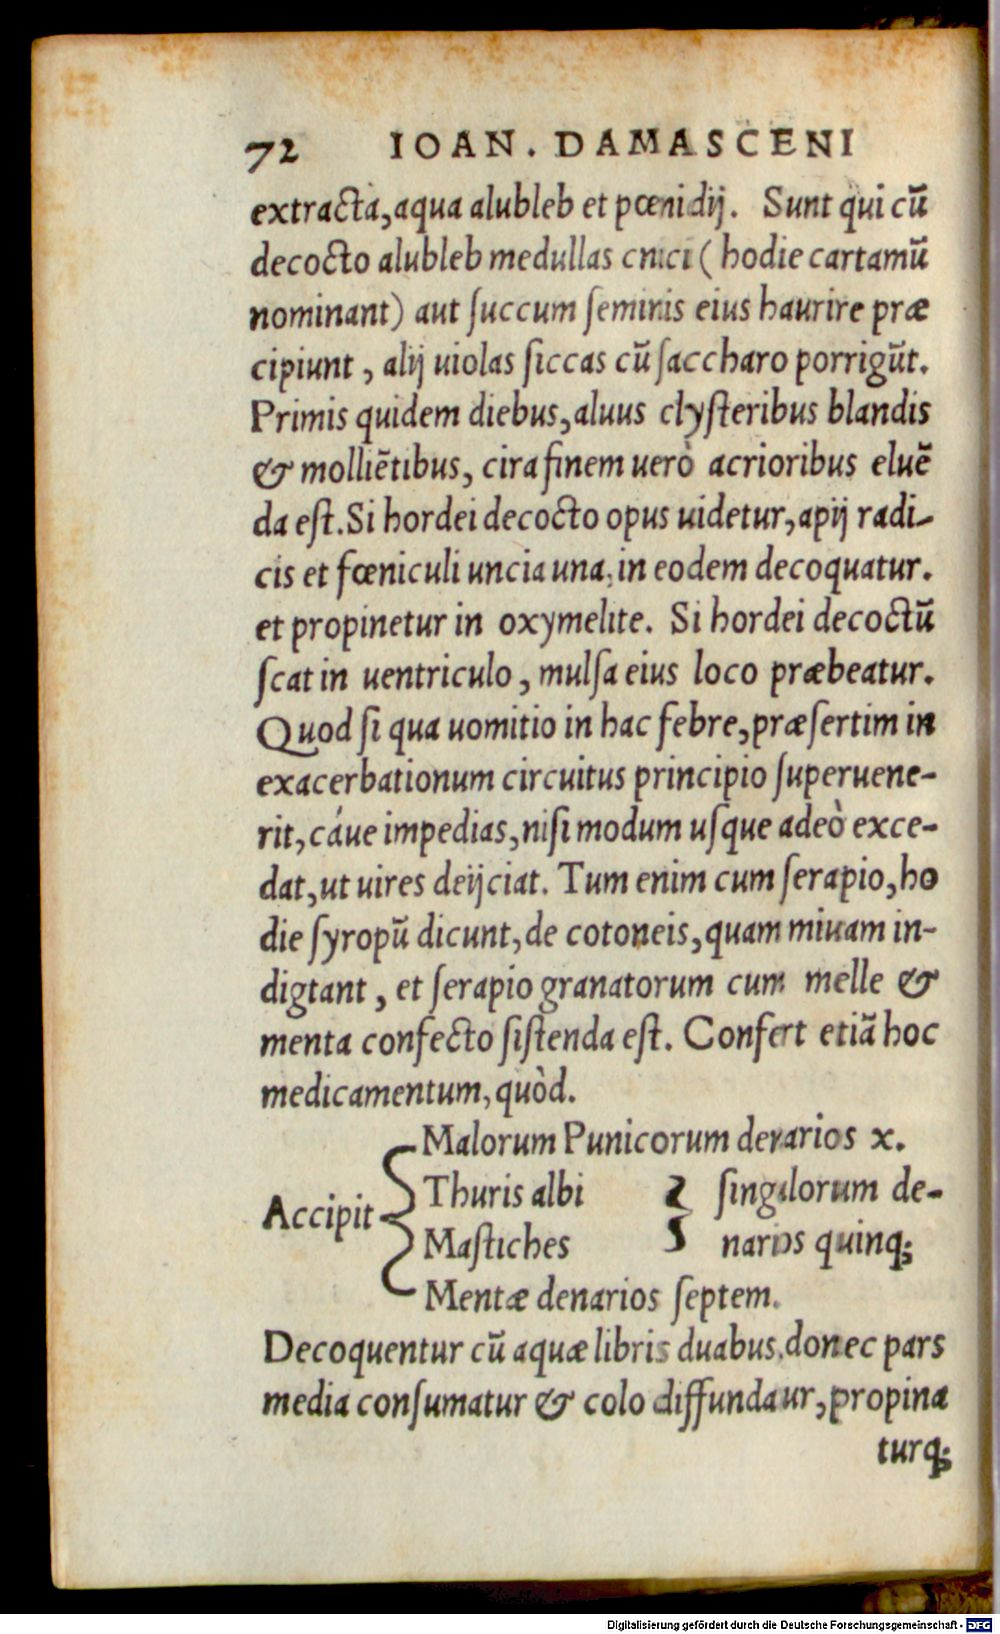 72 IOAN. DAMASCENI
extracta, aqua alubleb et pœnidij. Sunt qui cū
decocto alubleb medullas cnici ( hodie cartamū
nominant) aut ſuccum ſeminis eius haurire præ
cipiunt, alij uiolas ſiccas cū ſaccharo porrigūt.
Primis quidem diebus, aluus clyſteribus blandis
& molliētibus, cira finem uerò acrioribus eluē
da eſt. Si hordei decocto opus uidetur, apij radi-
cis et fœniculi uncia una, in eodem decoquatur.
et propinetur in oxymelite. Si hordei decoctū
ſcat in uentriculo, mulſa eius loco præbeatur.
Quod ſi qua uomitio in hac febre, præſertim in
exacerbationum circuitus principio ſuperuene-
rit, cáue impedias, niſi modum uſque adeò exce-
dat, ut uires deijciat. Tum enim cum ſerapio, ho
die ſyropū dicunt, de cotoneis, quam miuam in-
digtant, et ſerapio granatorum cum melle &
menta confecto ſiſtenda eſt. Confert etiā hoc
medicamentum, quòd.
Malorum Punicorum denarios x.
Thuris albi ſingulorum de-
Accipit
Maſtiches narios quinq;
Mentæ denarios ſeptem.
Decoquentur cū aquæ libris duabus, donec pars
media conſumatur & colo diffundaur, propina
turq;
Digitalisierung gefördert durch die Deutsche Forschungsgemeinschaft - DFG